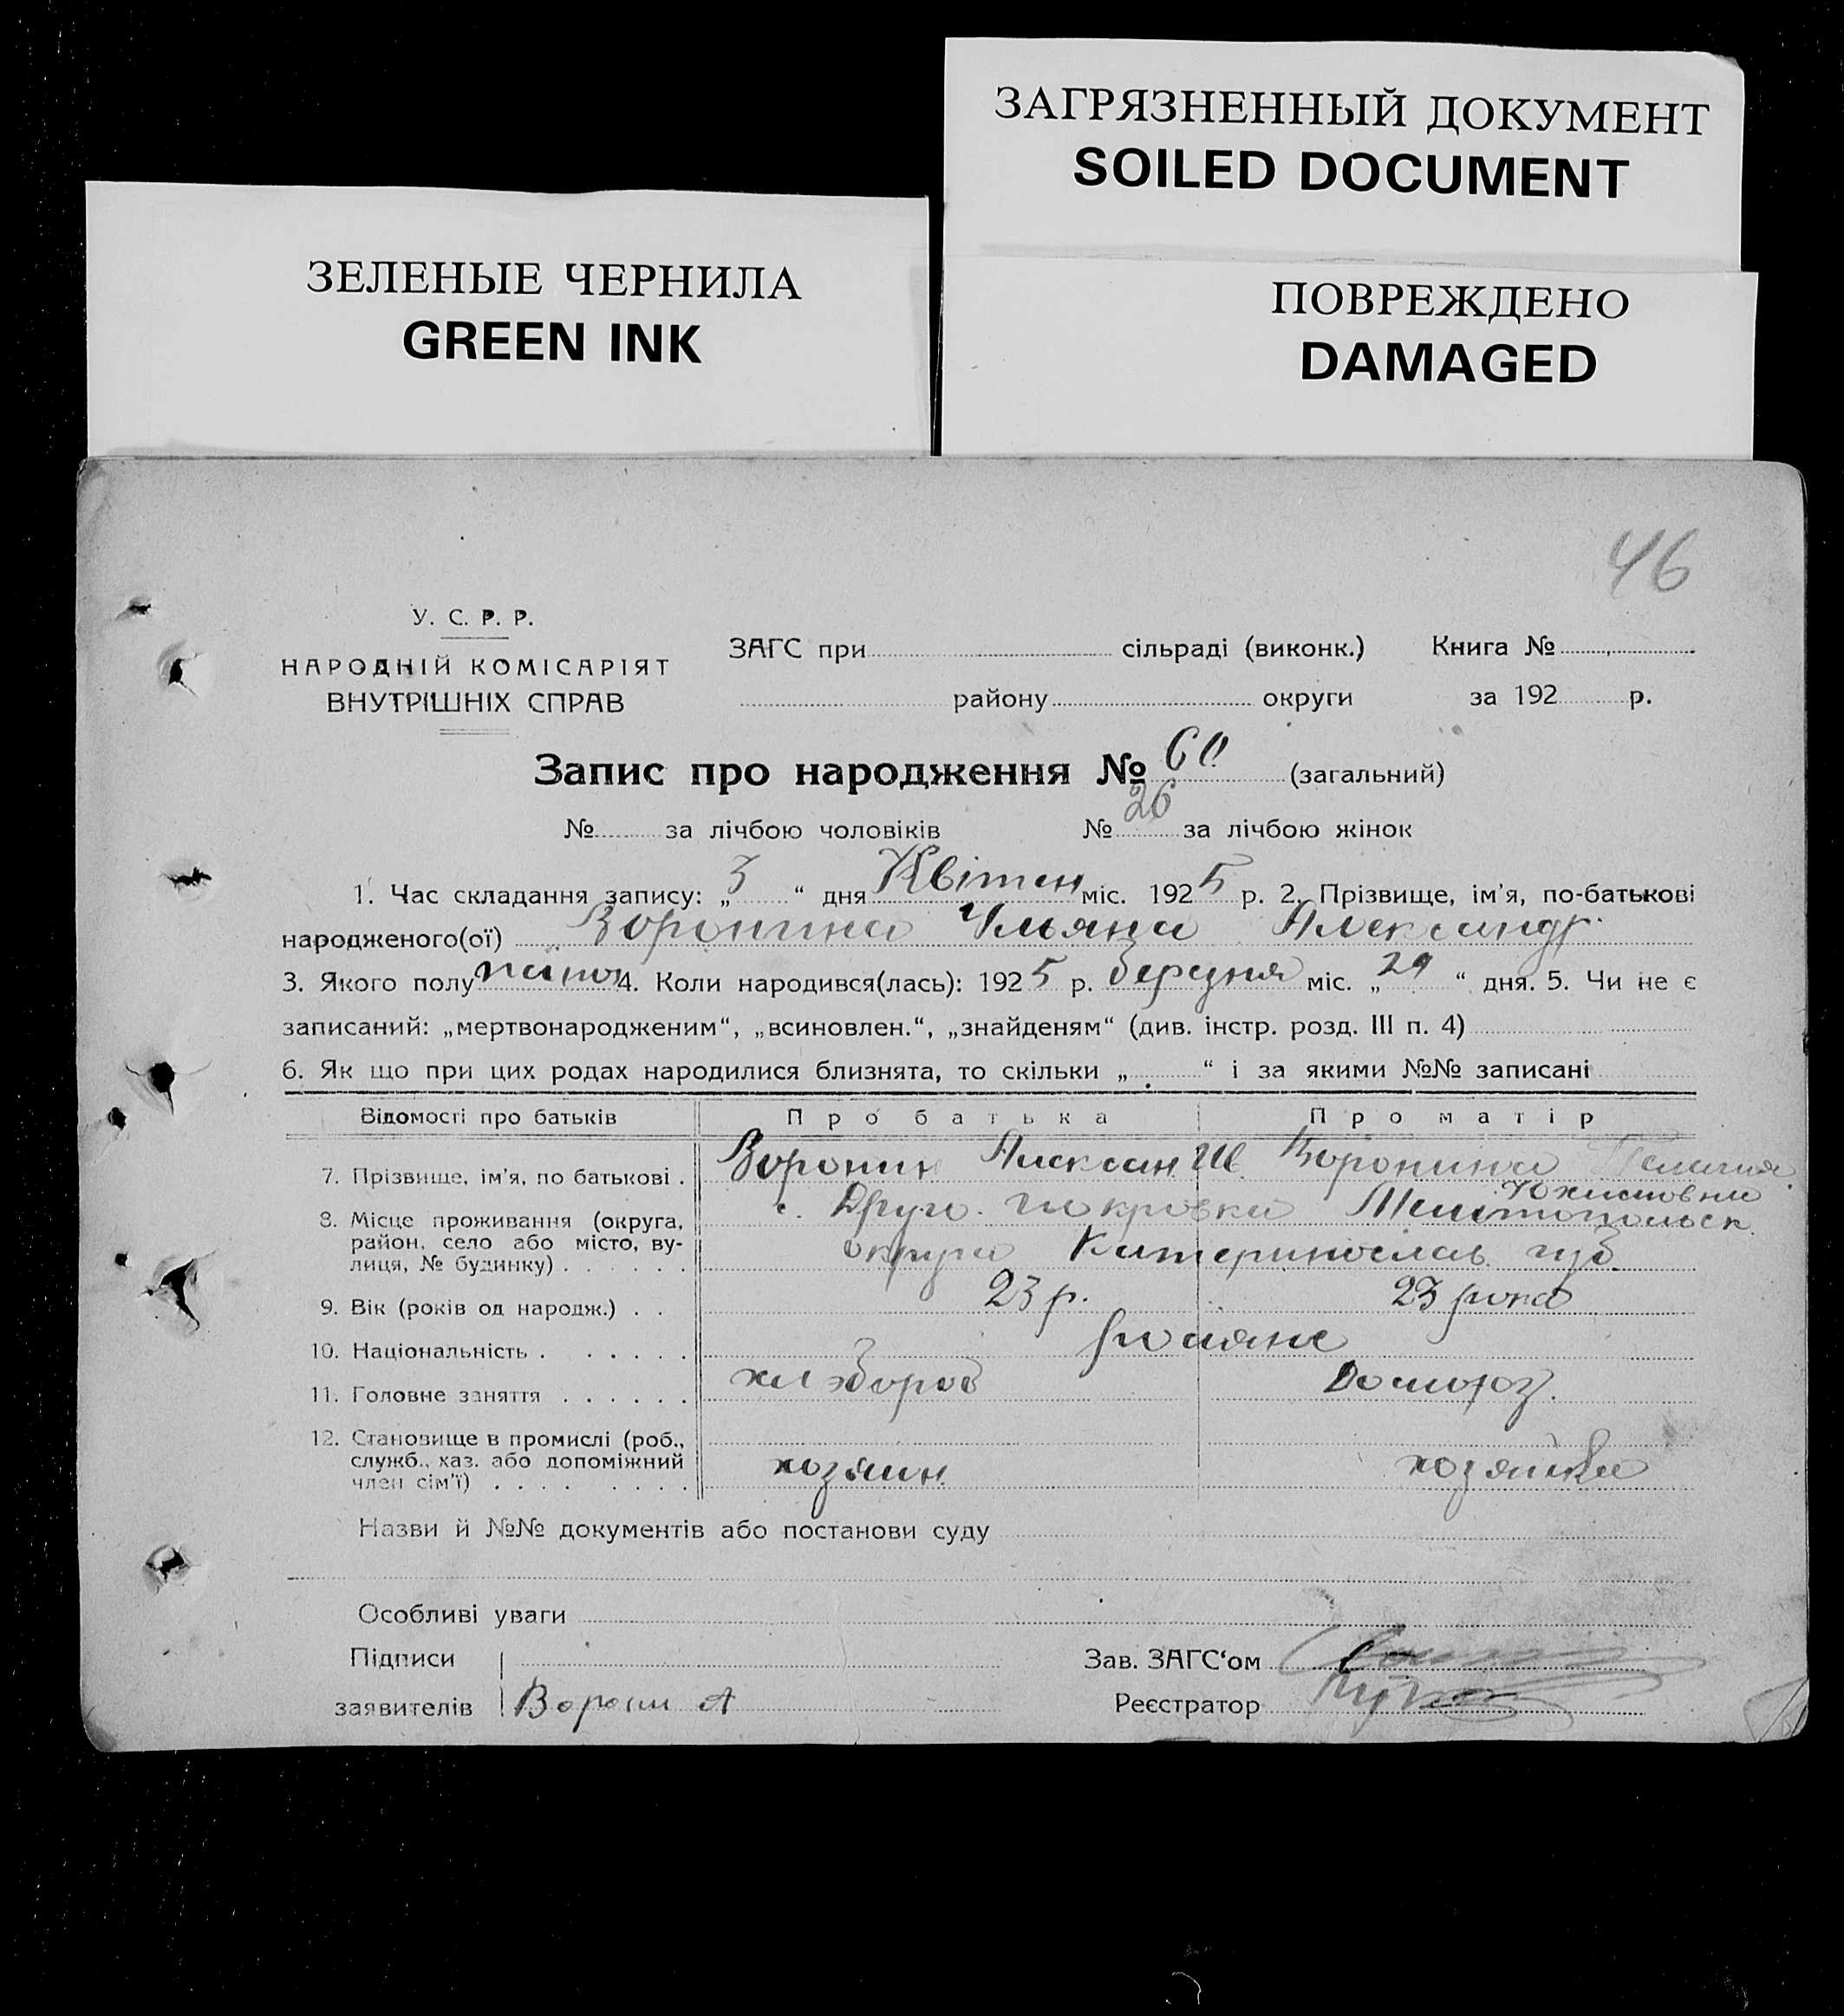 ЗАГРЯЗНЕННЫЙ ДОКУМЕНТ
SOILED DOCUMENT
ЗЕЛЕНЫЕ ЧЕРНИЛА
GREEN INK
ПОВРЕЖДЕНО
DAMAGED
46
У. С. Р. Р.
НАРОДНІЙ КОМІСАРІЯТ
ВНУТРІШНІХ СПРАВ
ЗАГС при сільраді (виконк.) Книга №
району округи за 192 р.
Запис про народження № 60 (загальний)
№ за лічбою чоловіків № 26 за лічбою жінок
1. Час складання запису: „ 3 “ дня Квітен міс. 1925 р. 2. Прізвище, ім'я, по-батькові
народженого(ої) Воронина Ульяна Александр.
3. Якого полу 4. Коли народився(лась): 1925 р. березня міс. „ 29 “ дня. 5. Чи не є
записаний: „мертвонародженим“, „всиновлен.“, „знайденям“ (див. інстр. розд. III п. 4)
6. Як що при цих родах народилися близнята, то скільки „ “ і за якими №№ записані
Відомості про батьків Про батька Про матір
7. Прізвище, ім'я, по батькові . Воронин Алексан. Воронина Пелагия
8. Місце проживання (округа, с. Друго. Покровка Мелітопольск.
район, село або місто, ву-
лиця, № будинку) . . . . . . округа Катеринослав. губ.
9. Вік (років од народж.) . . 23 р. 23 рока
10. Національність . . . . . . росіяне
11. Головне заняття . . . . . . хлэбороб Домогоз.
12. Становище в промислі (роб.,
служб., хаз. або допоміжний хозяин. хозяйка
член сім'ї) . . . . . . . .
Назви й №№ документів або постанови суду
Особливі уваги
Підписи Зав. ЗАГС‘ом
заявителів Воронин А Реєстратор